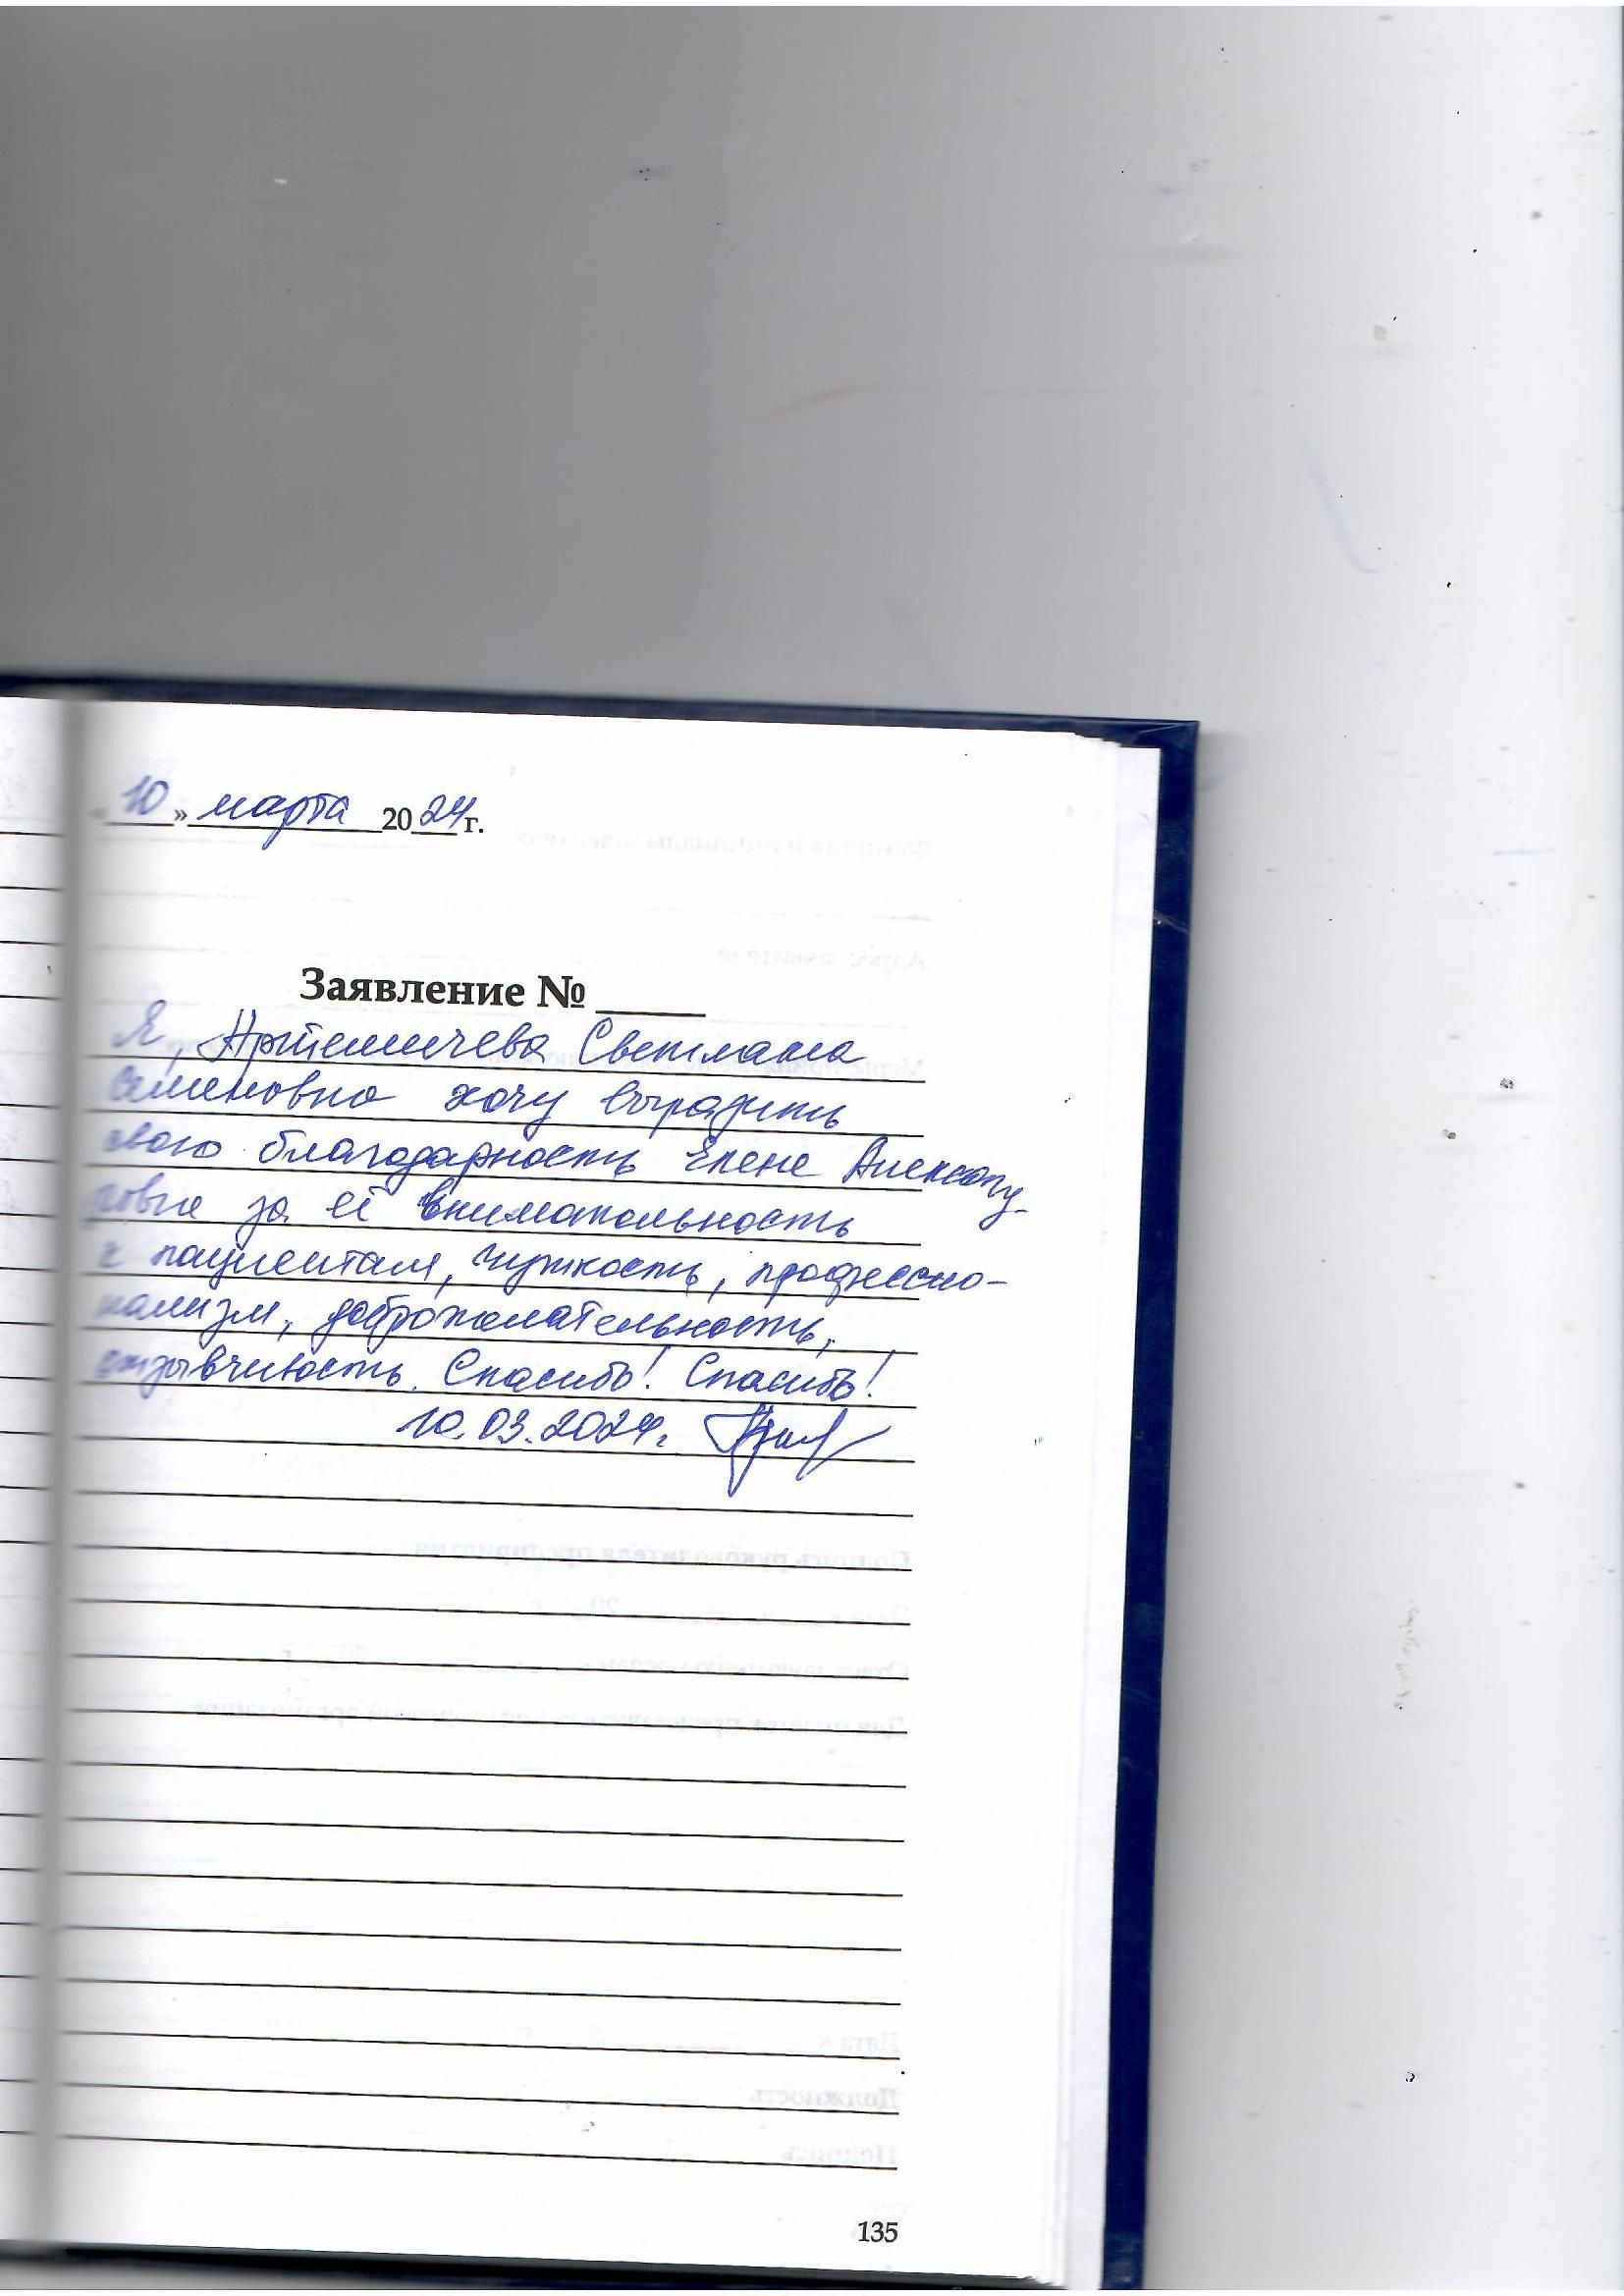 «10» марта 2024 г.
Заявление № ____
Я, Артемичева Светлана
Семеновна хочу выразить
свою благодарность Елене Александ-
ровне за её внимательность
к пациентам, чуткость, профессио-
нализм, доброжелательность,
отзывчивость. Спасибо! Спасибо!
10.03.2024г.
135